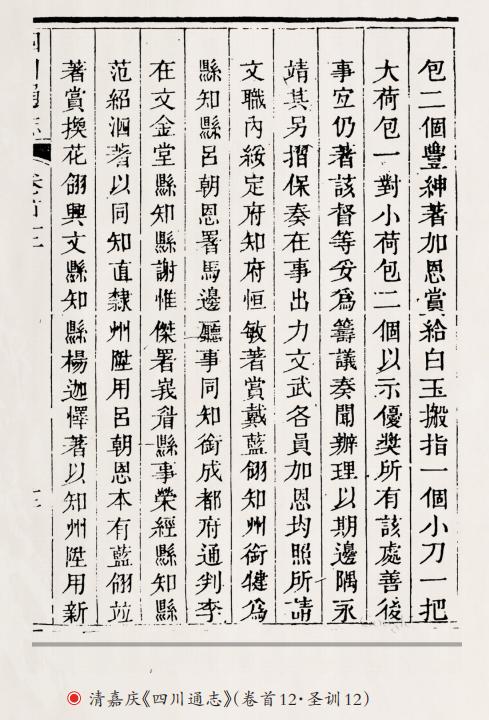 包二個豐紳著加恩賞給白玉搬指一個小刀一把
大荷包一對小荷包二個以示優奬所有該處善後
事宜仍著該督等妥爲籌議奏聞辦理以期邊隅永
靖其另摺保奏在事出力文武各員加恩均照所請
文職內綏定府知府恒敏著賞戴藍翎知州銜犍爲
縣知縣呂朝恩署馬邊廳事同知銜成都府通判李
在文金堂縣知縣謝惟傑署峩眉縣事榮經縣知縣
范紹泗著以同知直隸州陞用呂朝恩本有藍翎並
著賞換花翎興文縣知縣楊迦懌著以知州陞用新
四川通志
卷首十二
清嘉庆《四川通志》(卷首12·圣训12)